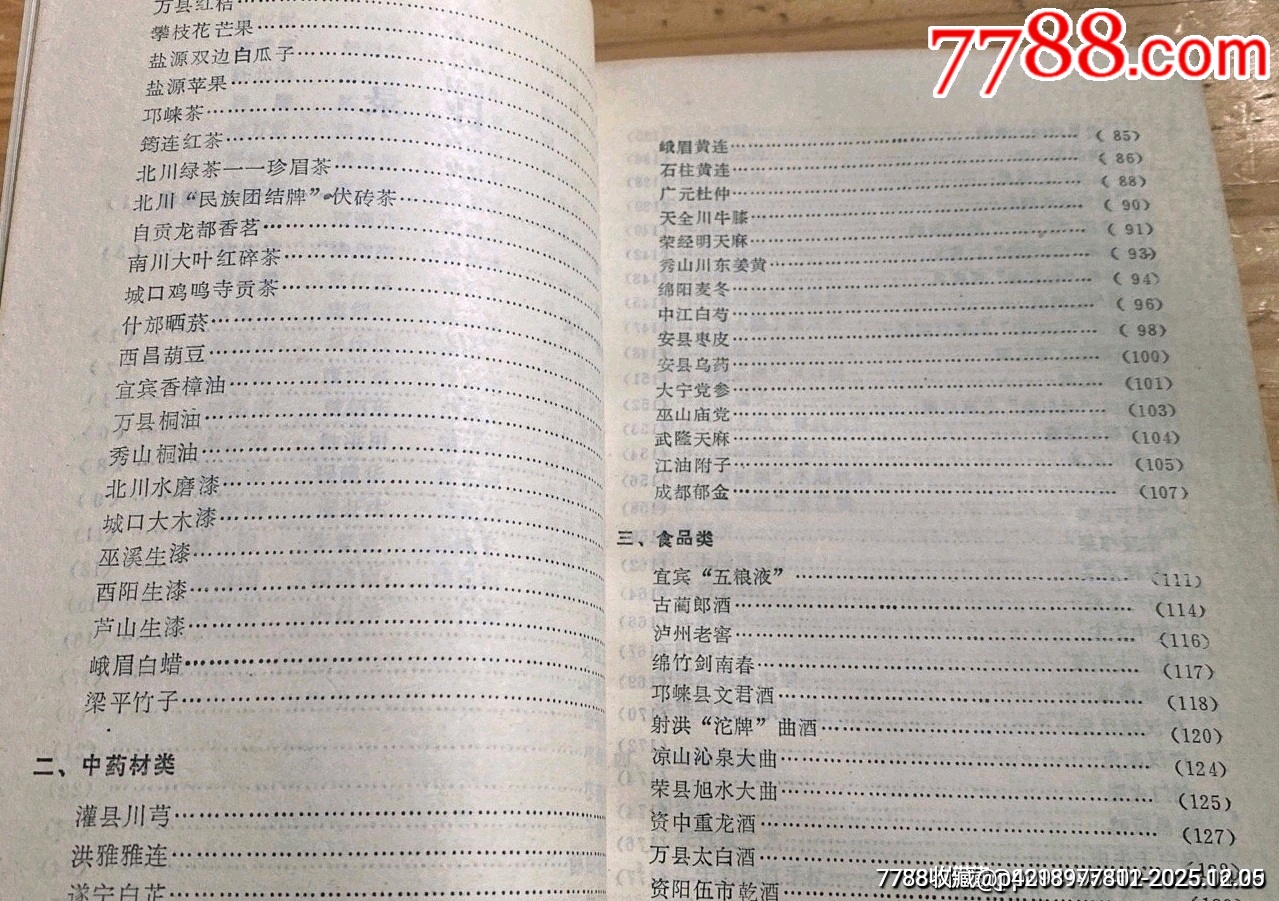 万县红桔
攀枝花芒果
盐源双边白瓜子
盐源苹果
邛崃茶
筠连红茶
北川绿茶——珍眉茶
北川“民族团结牌”伏砖茶
自贡龙都香茗
南川大叶红碎茶
城口鸡鸣寺贡茶
什邡晒菸
西昌葫豆
宜宾香樟油
万县桐油
秀山桐油
北川水磨漆
城口大木漆
巫溪生漆
酉阳生漆
芦山生漆
峨眉白蜡
梁平竹子
二、中药材类
灌县川芎
洪雅雅连
遂宁白芷
7788.com
峨眉黄连 (85)
石柱黄连 (86)
广元杜仲 (88)
天全川牛膝 (90)
荥经明天麻 (91)
秀山川东姜黄 (93)
绵阳麦冬 (94)
中江白芍 (96)
安县枣皮 (98)
安县乌药 (100)
大宁党参 (101)
巫山庙党 (103)
武隆天麻 (104)
江油附子 (105)
成都郁金 (107)
三、食品类
宜宾“五粮液” (111)
古蔺郎酒 (114)
泸州老窖 (116)
绵竹剑南春 (117)
邛崃县文君酒 (118)
射洪“沱牌”曲酒 (120)
凉山沁泉大曲 (124)
荣县旭水大曲 (125)
资中重龙酒 (127)
万县太白酒
资阳伍市乾酒
7788收藏@p4218977801-2025.12.05